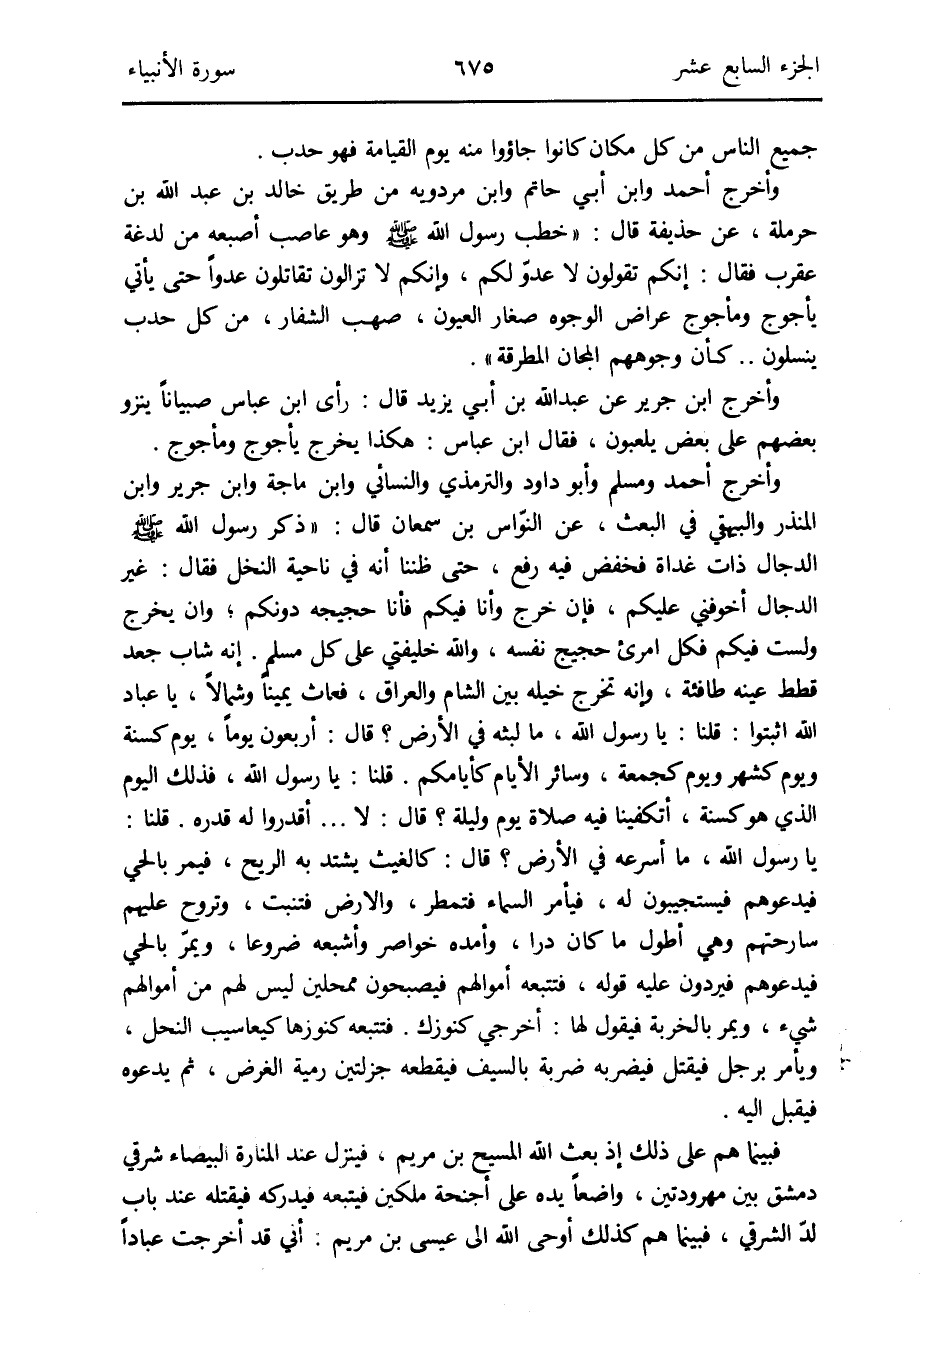 الجزء السابع عشر ٦٧٥ سورة الأنبياء
جميع الناس من كل مكان كانوا جاؤوا منه يوم القيامة فهو حدب .
وأخرج أحمد وابن أبي حاتم وابن مردويه من طريق خالد بن عبد الله بن
حرملة ، عن حذيفة قال : « خطب رسول الله ﷺ وهو عاصب أصبعه من لدغة
عقرب فقال : إنكم تقولون لا عدوّ لكم ، وإنكم لا تزالون تقاتلون عدواً حتى يأتي
يأجوج ومأجوج عراض الوجوه صغار العيون ، صهب الشفار ، من كل حدب
ينسلون .. كأن وجوههم المجان المطرقة » .
وأخرج ابن جرير عن عبدالله بن أبي يزيد قال : رأى ابن عباس صبياناً ينزو
بعضهم على بعض يلعبون ، فقال ابن عباس : هكذا يخرج يأجوج ومأجوج .
وأخرج أحمد ومسلم وأبو داود والترمذي والنسائي وابن ماجة وابن جرير وابن
المنذر والبيهقي في البعث ، عن النوّاس بن سمعان قال : « ذكر رسول الله ﷺ
الدجال ذات غداة فخفض فيه رفع ، حتى ظننا أنه في ناحية النخل فقال : غير
الدجال أخوفني عليكم ، فإن خرج وأنا فيكم فأنا حجيجه دونكم ؛ وان يخرج
ولست فيكم فكل امرئ حجيج نفسه ، والله خليفتي على كل مسلم . إنه شاب جعد
قطط عينه طافئة ، وإنه تخرج خيله بين الشام والعراق ، فعاث يميناً وشمالاً ، يا عباد
الله اثبتوا : قلنا : يا رسول الله ، ما لبثه في الأرض ؟ قال : أربعون يوماً ، يوم كسنة
ويوم كشهر ويوم كجمعة ، وسائر الأيام كأيامكم . قلنا : يا رسول الله ، فذلك اليوم
الذي هو كسنة ، أتكفينا فيه صلاة يوم وليلة ؟ قال : لا ... أقدروا له قدره . قلنا :
يا رسول الله ، ما أسرعه في الأرض ؟ قال : كالغيث يشتد به الريح ، فيمر بالحي
فيدعوهم فيستجيبون له ، فيأمر السماء فتمطر ، والارض فتنبت ، وتروح عليهم
سارحتهم وهي أطول ما كان درا ، وأمده خواصر وأشبعه ضروعا ، ويمرّ بالحي
فيدعوهم فيردون عليه قوله ، فتتبعه أموالهم فيصبحون ممحلين ليس لهم من أموالهم
شيء ، ويمر بالخربة فيقول لها : أخرجي كنوزك . فتتبعه كنوزها كيعاسيب النحل ،
ويأمر برجل فيقتل فيضربه ضربة بالسيف فيقطعه جزلتين رمية الغرض ، ثم يدعوه
فيقبل اليه .
فبينما هم على ذلك إذ بعث الله المسيح بن مريم ، فينزل عند المنارة البيضاء شرقي
دمشق بين مهرودتين ، واضعاً يده على أجنحة ملكين فيتبعه فيدركه فيقتله عند باب
لدّ الشرقي ، فبينما هم كذلك أوحى الله الى عيسى بن مريم : أني قد أخرجت عباداً